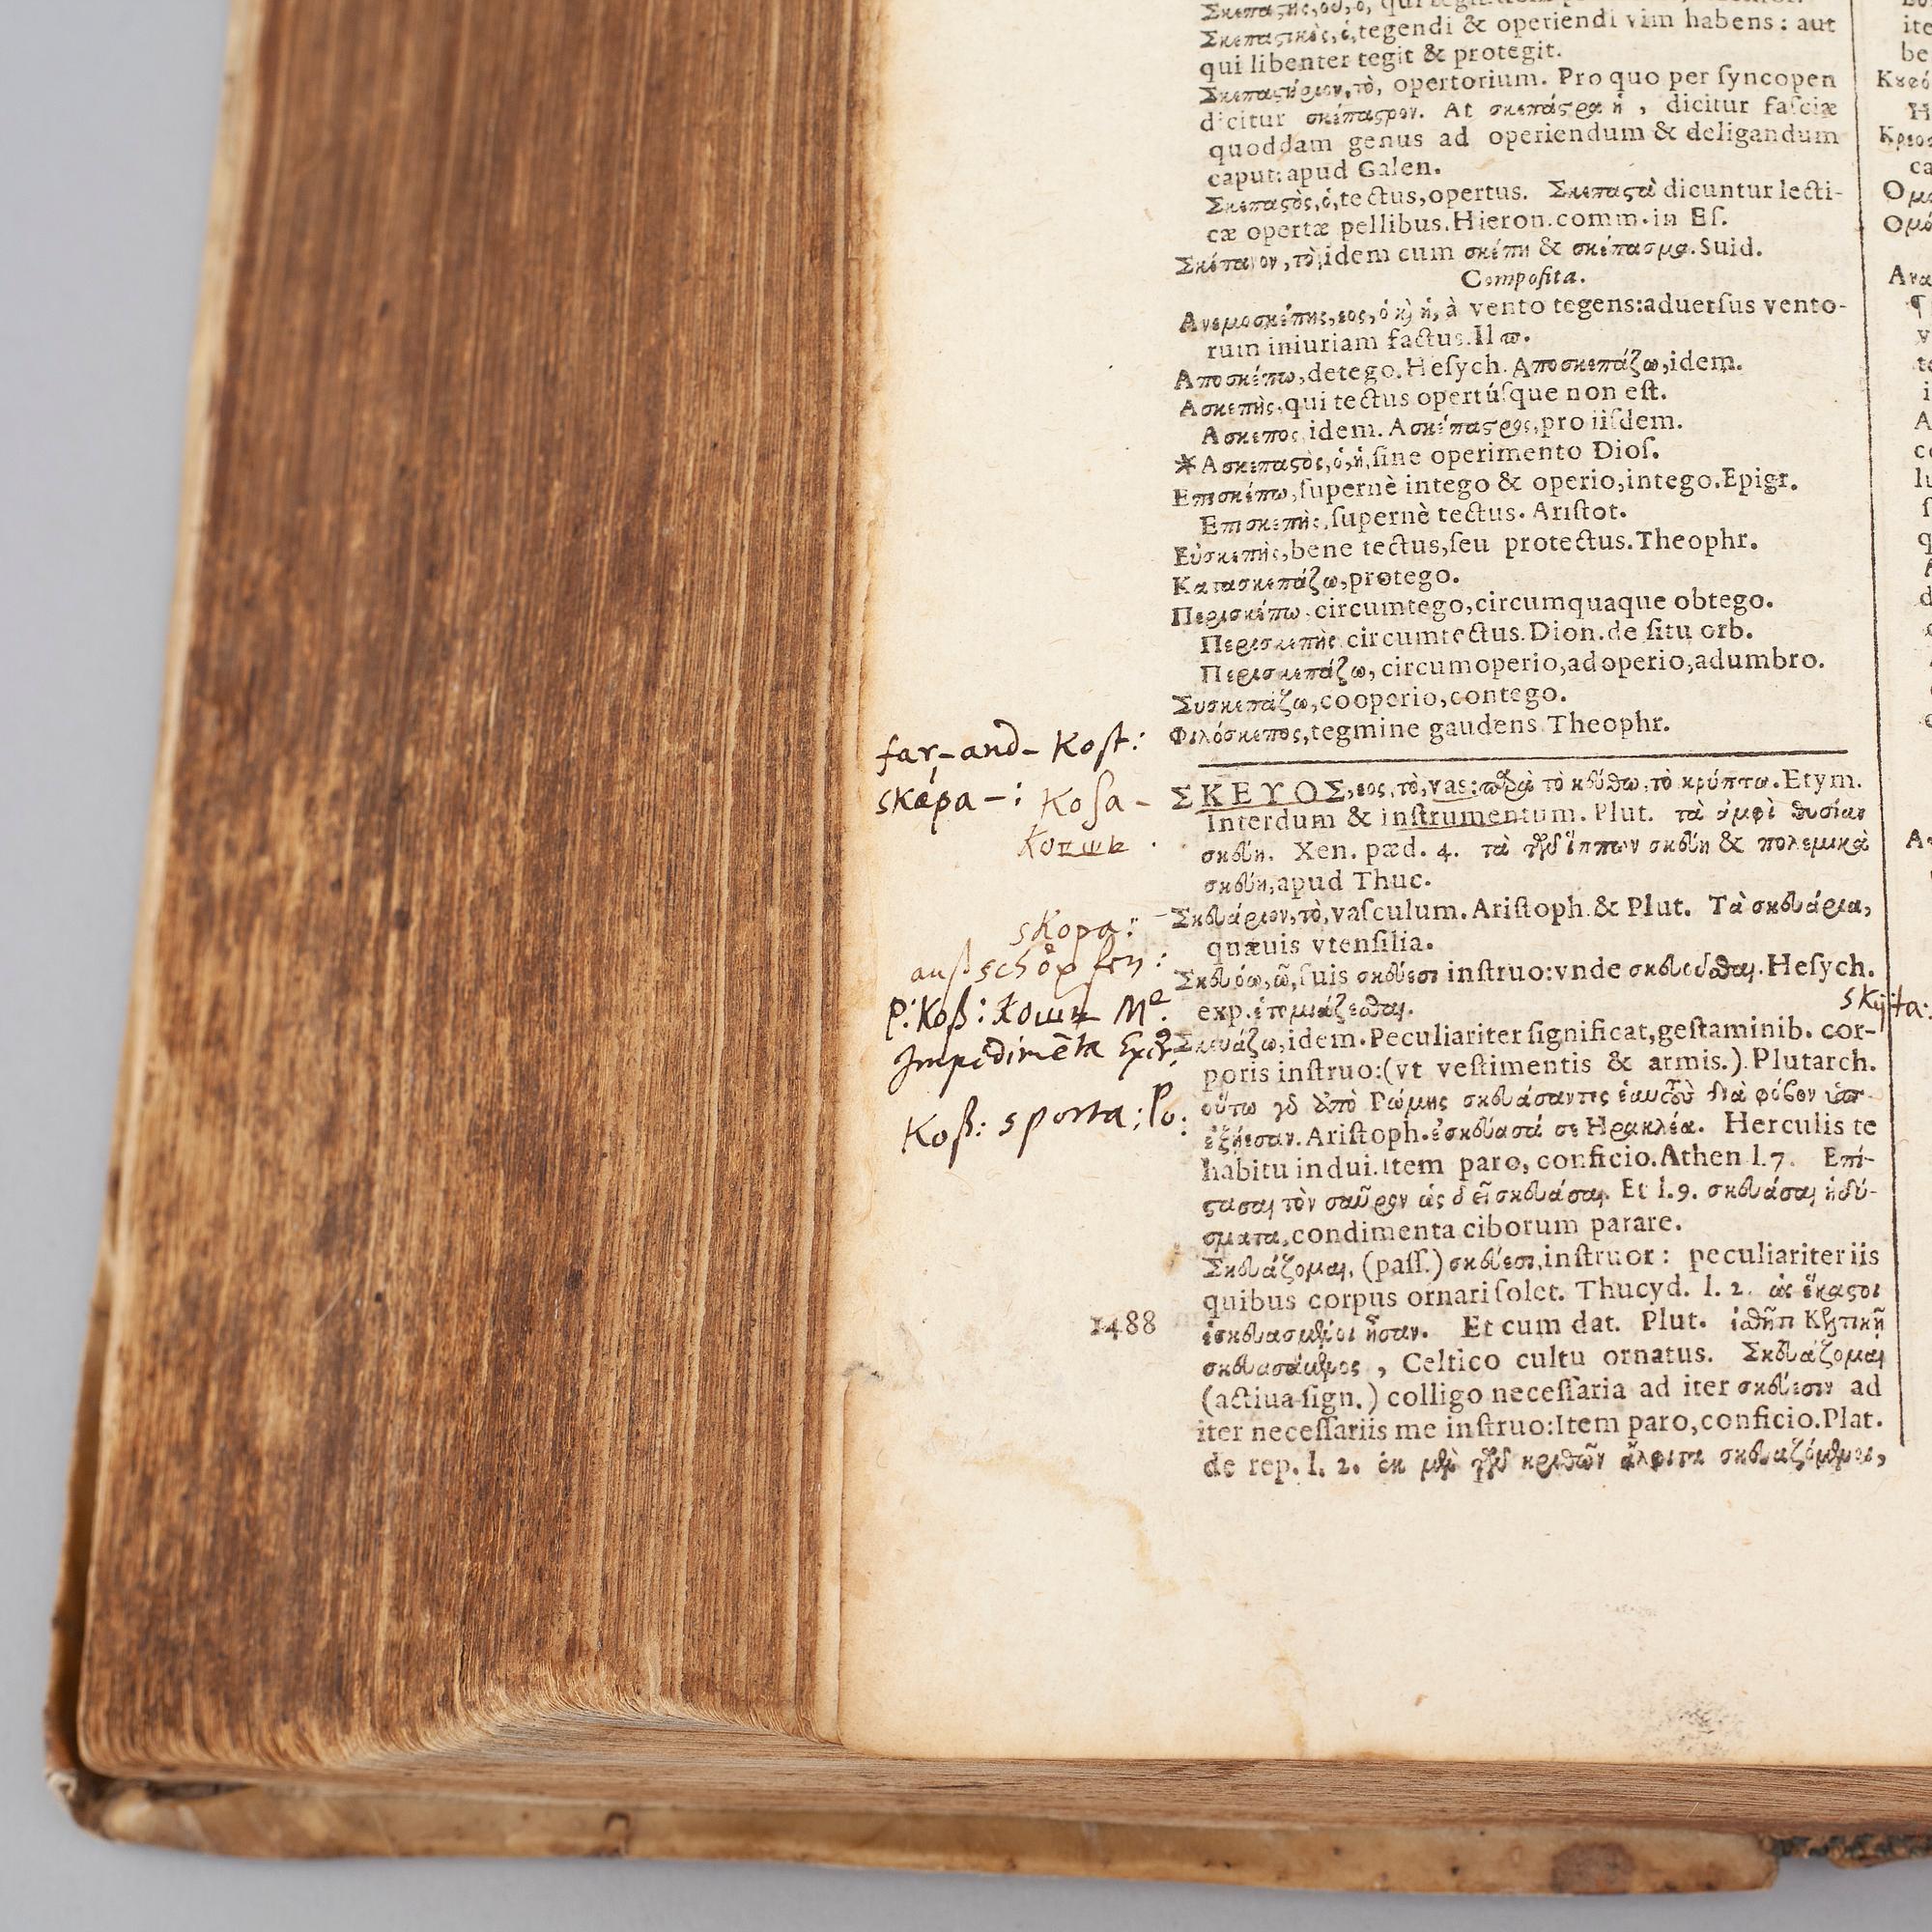 tegendi & operiendi vim habens: aut
qui libenter tegit & protegit.
opertorium. Pro quo per ſyncopen
dicitur σκέπαςρον. At σκεπάςρα ἡ, dicitur faſciæ
quoddam genus ad operiendum & deligandum
caput: apud Galen.
Σκεπαςὸς,ὁ,tectus,opertus. Σκεπαςὰ dicuntur lecti-
cæ opertæ pellibus.Hieron.comm.in Eſ.
τὸ,idem cum σκέπη & σκέπασμα.Suid.
Compoſita.
Ανεμοσκέπης,εος,ὁ ϗ ἡ, à vento tegens:aduerſus vento-
rum iniuriam factus.Il ϖ.
Αποσκέπω,detego.Heſych.Αποσκεπάζω,idem.
Ασκεπὴς,qui tectus opertúſque non eſt.
Ασκεπος,idem. pro iiſdem.
*Ασκεπαςὸς,ὁ,ἡ,ſine operimento Dioſ.
Επισκέπω,ſupernè intego & operio,intego.Epigr.
Επισκεπὴς,ſupernè tectus. Ariſtot.
Εὐσκεπὴς,bene tectus,ſeu protectus.Theophr.
Κατασκεπάζω,protego.
Περισκέπω,circumtego,circumquaque obtego.
Περισκεπὴς circumtectus.Dion.de ſitu orb.
Περισκεπάζω, circumoperio,adoperio,adumbro.
Συσκεπάζω,cooperio,contego.
Φιλόσκεπος,tegmine gaudens Theophr.
far-and- Koſt:
skápa-: Koſa-
skopa:
außschöpfen:
Koß: sporta;
ΣΚΕΥΟΣ,εος,τὸ,vas:παρὰ τὸ κεύθω,τὸ κρύπτω.Etym.
Interdum & inſtrumentum. Plut. τὰ ἀμφὶ θυσίαν
σκεύη. Xen. pæd. 4. τὰ τῶν ἵππων σκεύη & πολεμικὰ
σκεύη,apud Thuc.
Σκευάριον,τὸ,vaſculum.Ariſtoph.& Plut. Τὰ σκευάρια,
quæuis vtenſilia.
Σκευόω,ῶ,ſuis σκεύεσι inſtruo:vnde Heſych.
exp.
Σκευάζω,idem.Peculiariter ſignificat,geſtaminib. cor-
poris inſtruo:(vt veſtimentis & armis.) Plutarch.
οὕτω γὸ ἀπὸ Ρώμης σκευάσαντες ἑαυτοὺ διὰ φόβον
ἐξῄεσαν.Ariſtoph.ἐσκεύασά σε Ηρακλέα. Herculis te
habitu indui.Item paro, conficio.Athen l.7. Επί-
ςασαι τὸν σαῦρον ὡς δεῖ σκευάσαι. Et l.9. σκευάσαι ἡδύ-
σματα,condimenta ciborum parare.
Σκευάζομαι, (paſſ.) σκεύεσι,inſtruor: peculiariter iis
quibus corpus ornari ſolet. Thucyd. l. 2. ὡς ἕκαςοι
1488
ἐσκευασμένοι ἦσαν. Et cum dat. Plut. ἐσθῆτι Κελτικῇ
σκευασάμενος, Celtico cultu ornatus. Σκευάζομαι
(actiua ſign.) colligo neceſſaria ad iter σκεύεσιν ad
iter neceſſariis me inſtruo:Item paro,conficio.Plat.
de rep. l. 2. ἐκ μὲν τῶν κριθῶν ἄλφιτα σκευαζόμενοι,